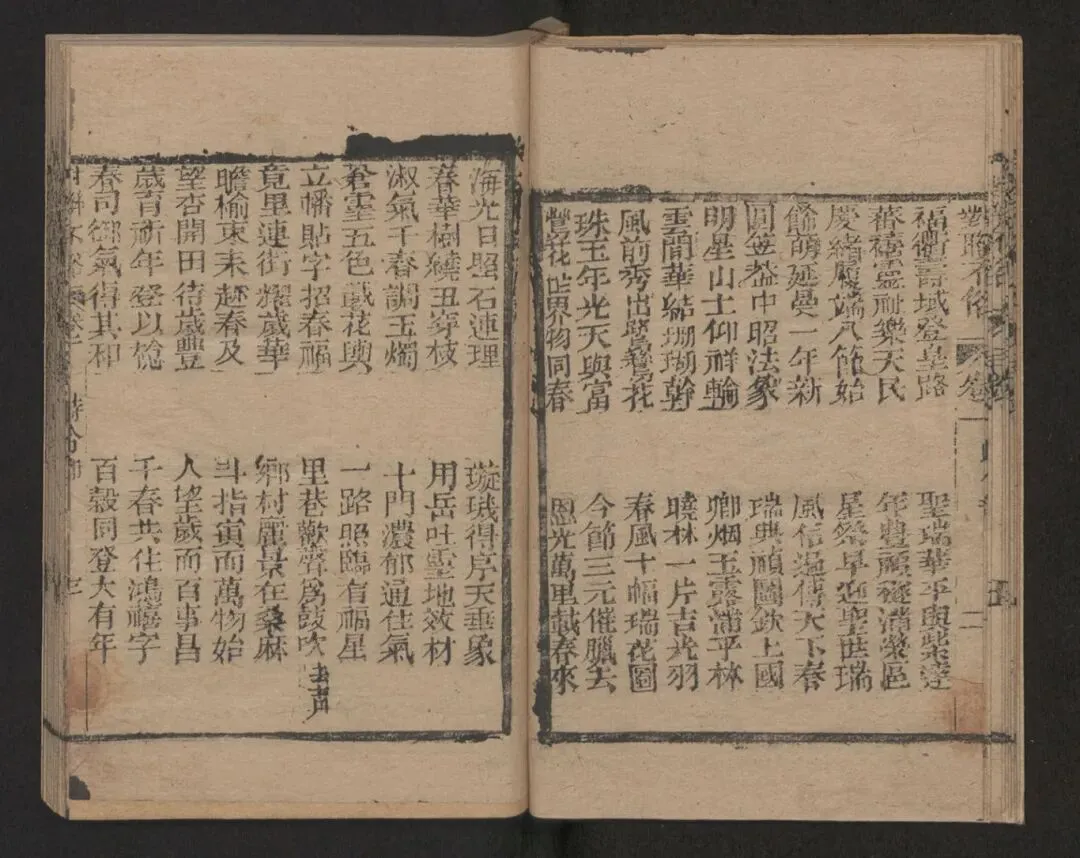 對聯不俗
福衢壽域登皇路
蕃禧靈祉樂天民
慶緒履端八節始
餘萌延曼一年新
圓笠中昭法象
明星山土仰祥輪
雲間華結珊瑚幹
風前秀出鴛鴦花
珠玉年光天與富
鶯花世界物同春
聖瑞華平與紫達
年豊
星祭早迎聖世瑞
風信遍傳天下春
瑞典禎圖欽上國
卿烟玉露滿平林
曉林一片吉光羽
春風十幅瑞花圖
今節三元催臘去
恩光萬里載春來
海光日照石連理
春華樹繞丑穿枝
淑氣千春調玉燭
靈五色載花輿
立幡貼字招春福
竟里連街耀歲華
瞻榆束耒趂春及
望杏開田待歲豐
歲育祈年登以稔
春司御氣得其和
璇璣得序天垂象
用岳吐雲地效材
十門濃郁通佳氣
一路照臨有福星
里巷歡聲爲鼓吹去声
鄉村麗景在桑麻
斗指寅而萬物始
人望歲而百事昌
千春共住鴻禧字
百穀同登大有年